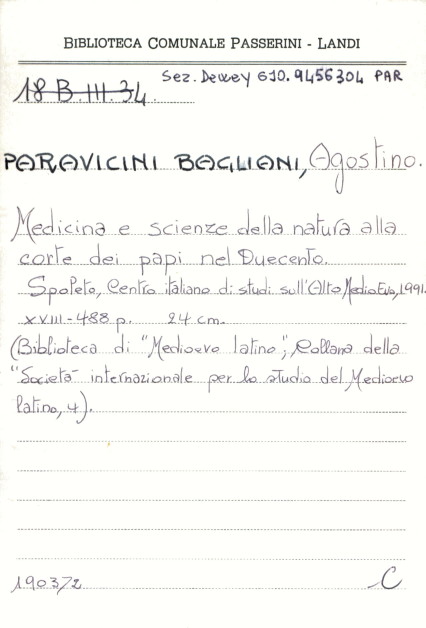 BIBLIOTECA COMUNALE PASSERINI - LANDI
Sez. Dewey 610.9456304 PAR
18 B.III.34
PARAVICINI BAGLIANI, Agostino.
Medicina e scienze della natura alla
corte dei papi nel Duecento.
Spoleto, Centro italiano di studi sull'Alto Medio Evo, 1991.
XVIII-488 p. 24 cm.
(Biblioteca di "Medioevo latino"; Collana della
"Società internazionale per lo studio del Medioevo
latino, 4).
190372 C